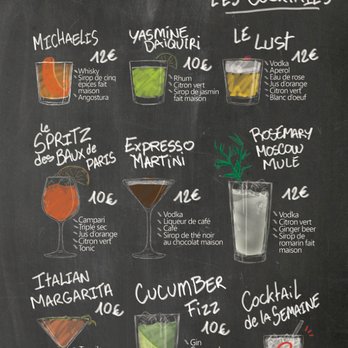 LES COCKTAILS
MICHAELIS
12€
Whisky
Sirop de cinq
épices fait
maison
Angostura
YASMINE
DAIQUIRI
10€
Rhum
Citron vert
Sirop de jasmin
fait maison
LE
LUST
12€
Vodka
Aperol
Eau de rose
Jus d'orange
Citron vert
Blanc d'oeuf
LE
SPRITZ
des BAUX de
PARIS
10€
Campari
Triple sec
Jus d'orange
Citron vert
Tonic
EXPRESSO
MARTINI
12€
Vodka
Liqueur de café
Café
Sirop de thé noir
au chocolat maison
ROSEMARY
MOSCOW
MULE
12€
Vodka
Citron vert
Ginger beer
Sirop de
romarin fait
maison
ITALIAN
MARGARITA
10€
CUCUMBER
FIZZ
10€
Gin
Cocktail
de la SEMAINE